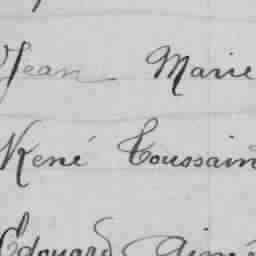 Jean Marie
René Toussain
Edouard Aimé